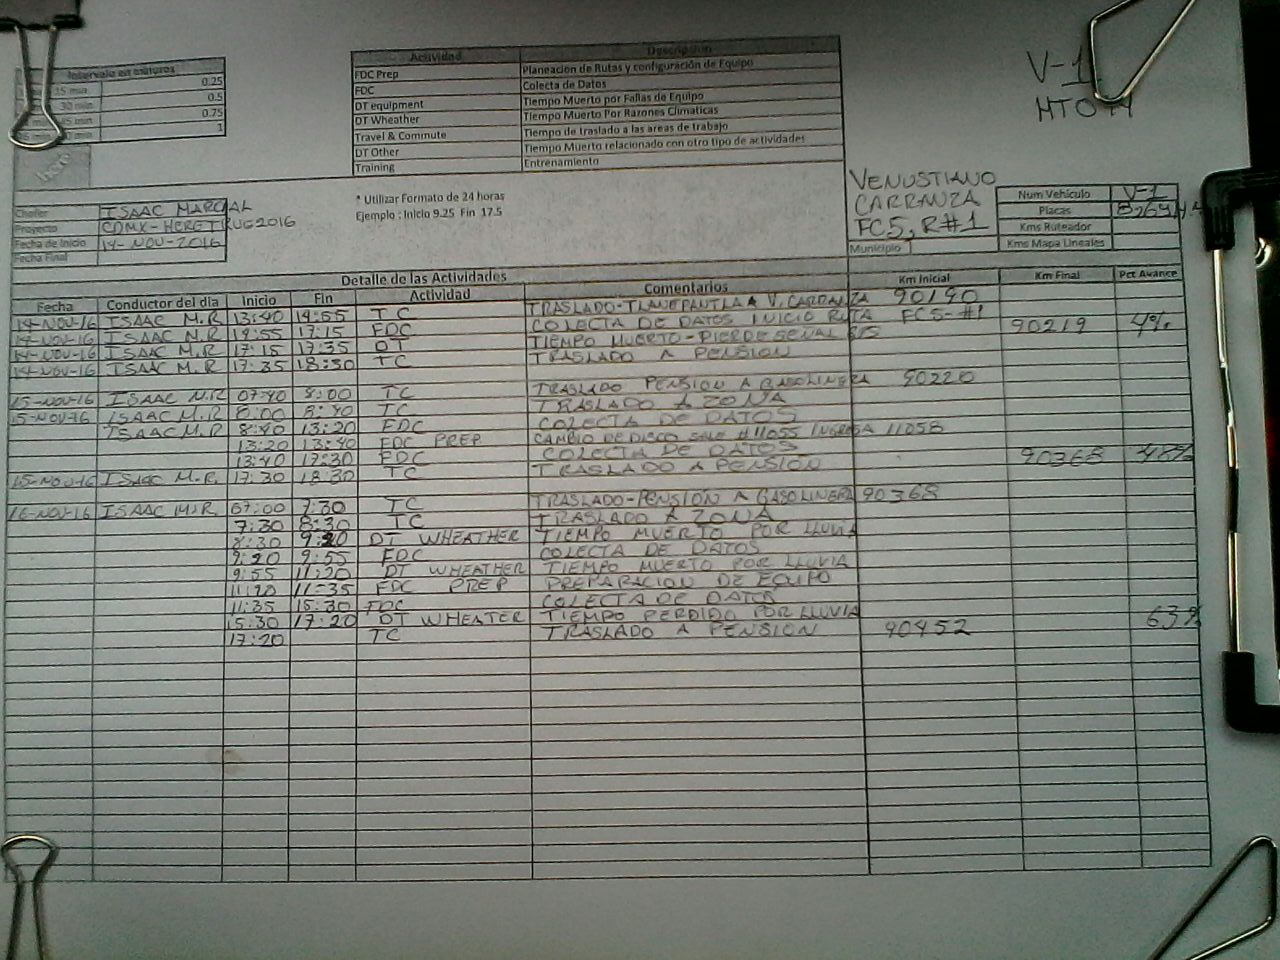 V-1
MTO44
Intervalo en minutos
15 min 0.25
30 min 0.5
45 min 0.75
min 1
here
Actividad Descripcion
FDC Prep Planeacion de Rutas y configuración de Equipo
FDC Colecta de Datos
DT equipment Tiempo Muerto por Fallas de Equipo
DT Wheather Tiempo Muerto Por Razones Climaticas
Travel & Commute Tiempo de traslado a las areas de trabajo
DT Other Tiempo Muerto relacionado con otro tipo de actividades
Training Entrenamiento
* Utilizar Formato de 24 horas
Ejemplo : Inicio 9.25 Fin 17.5
Chofer ISAAC MARCIAL
Proyecto CDMX-HERETRUE2016
Fecha de Inicio 14-NOV-2016
Fecha Final
VENUSTIANO
CARRANZA
FC5, R#1
Municipio
Num Vehículo V-1
Placas
Kms Ruteador
Kms Mapa Lineales
Detalle de las Actividades
Fecha Conductor del día Inicio Fin Actividad Comentarios Km Inicial Km Final Pct Avance
14-NOV-16 ISAAC M.R 13:40 14:55 TC TRASLADO-TLANEPANTLA A V. CARRANZA 90190
14-NOV-16 ISAAC M.R 14:55 17:15 FDC COLECTA DE DATOS INICIO RUTA FC5-#1 90219 4%
14-NOV-16 ISAAC M.R 17:15 17:35 DT TIEMPO MUERTO-PIERDE SEÑAL
14-NOV-16 ISAAC M.R 17:35 18:30 TC TRASLADO A PENSION
15-NOV-16 ISAAC M.R 07:40 8:00 TC TRASLADO PENSION A GASOLINERA 90220
15-NOV-16 ISAAC M.R 8:00 8:40 TC TRASLADO A ZONA
ISAAC M.R 8:40 13:20 FDC COLECTA DE DATOS
13:20 13:40 FDC PREP CAMBIO DE DISCO SALE #11055 INGRESA 11058
13:40 17:30 FDC COLECTA DE DATOS 90368 48%
15-NOV-16 ISAAC M.R. 17:30 18:30 TC TRASLADO A PENSIÓN
16-NOV-16 ISAAC M.R. 07:00 7:30 TC TRASLADO-PENSIÓN A GASOLINERA 90368
7:30 8:30 TC TRASLADO A ZONA
8:30 9:20 DT WHEATHER TIEMPO MUERTO POR LLUVIA
9:20 9:55 FDC COLECTA DE DATOS
9:55 11:20 DT WHEATHER TIEMPO MUERTO POR LLUVIA
11:20 11:35 FDC PREP PREPARACION DE EQUIPO
11:35 15:30 FDC COLECTA DE DATOS
15:30 17:20 DT WHEATER TIEMPO PERDIDO POR LLUVIA 63%
17:20 TC TRASLADO A PENSION 90452